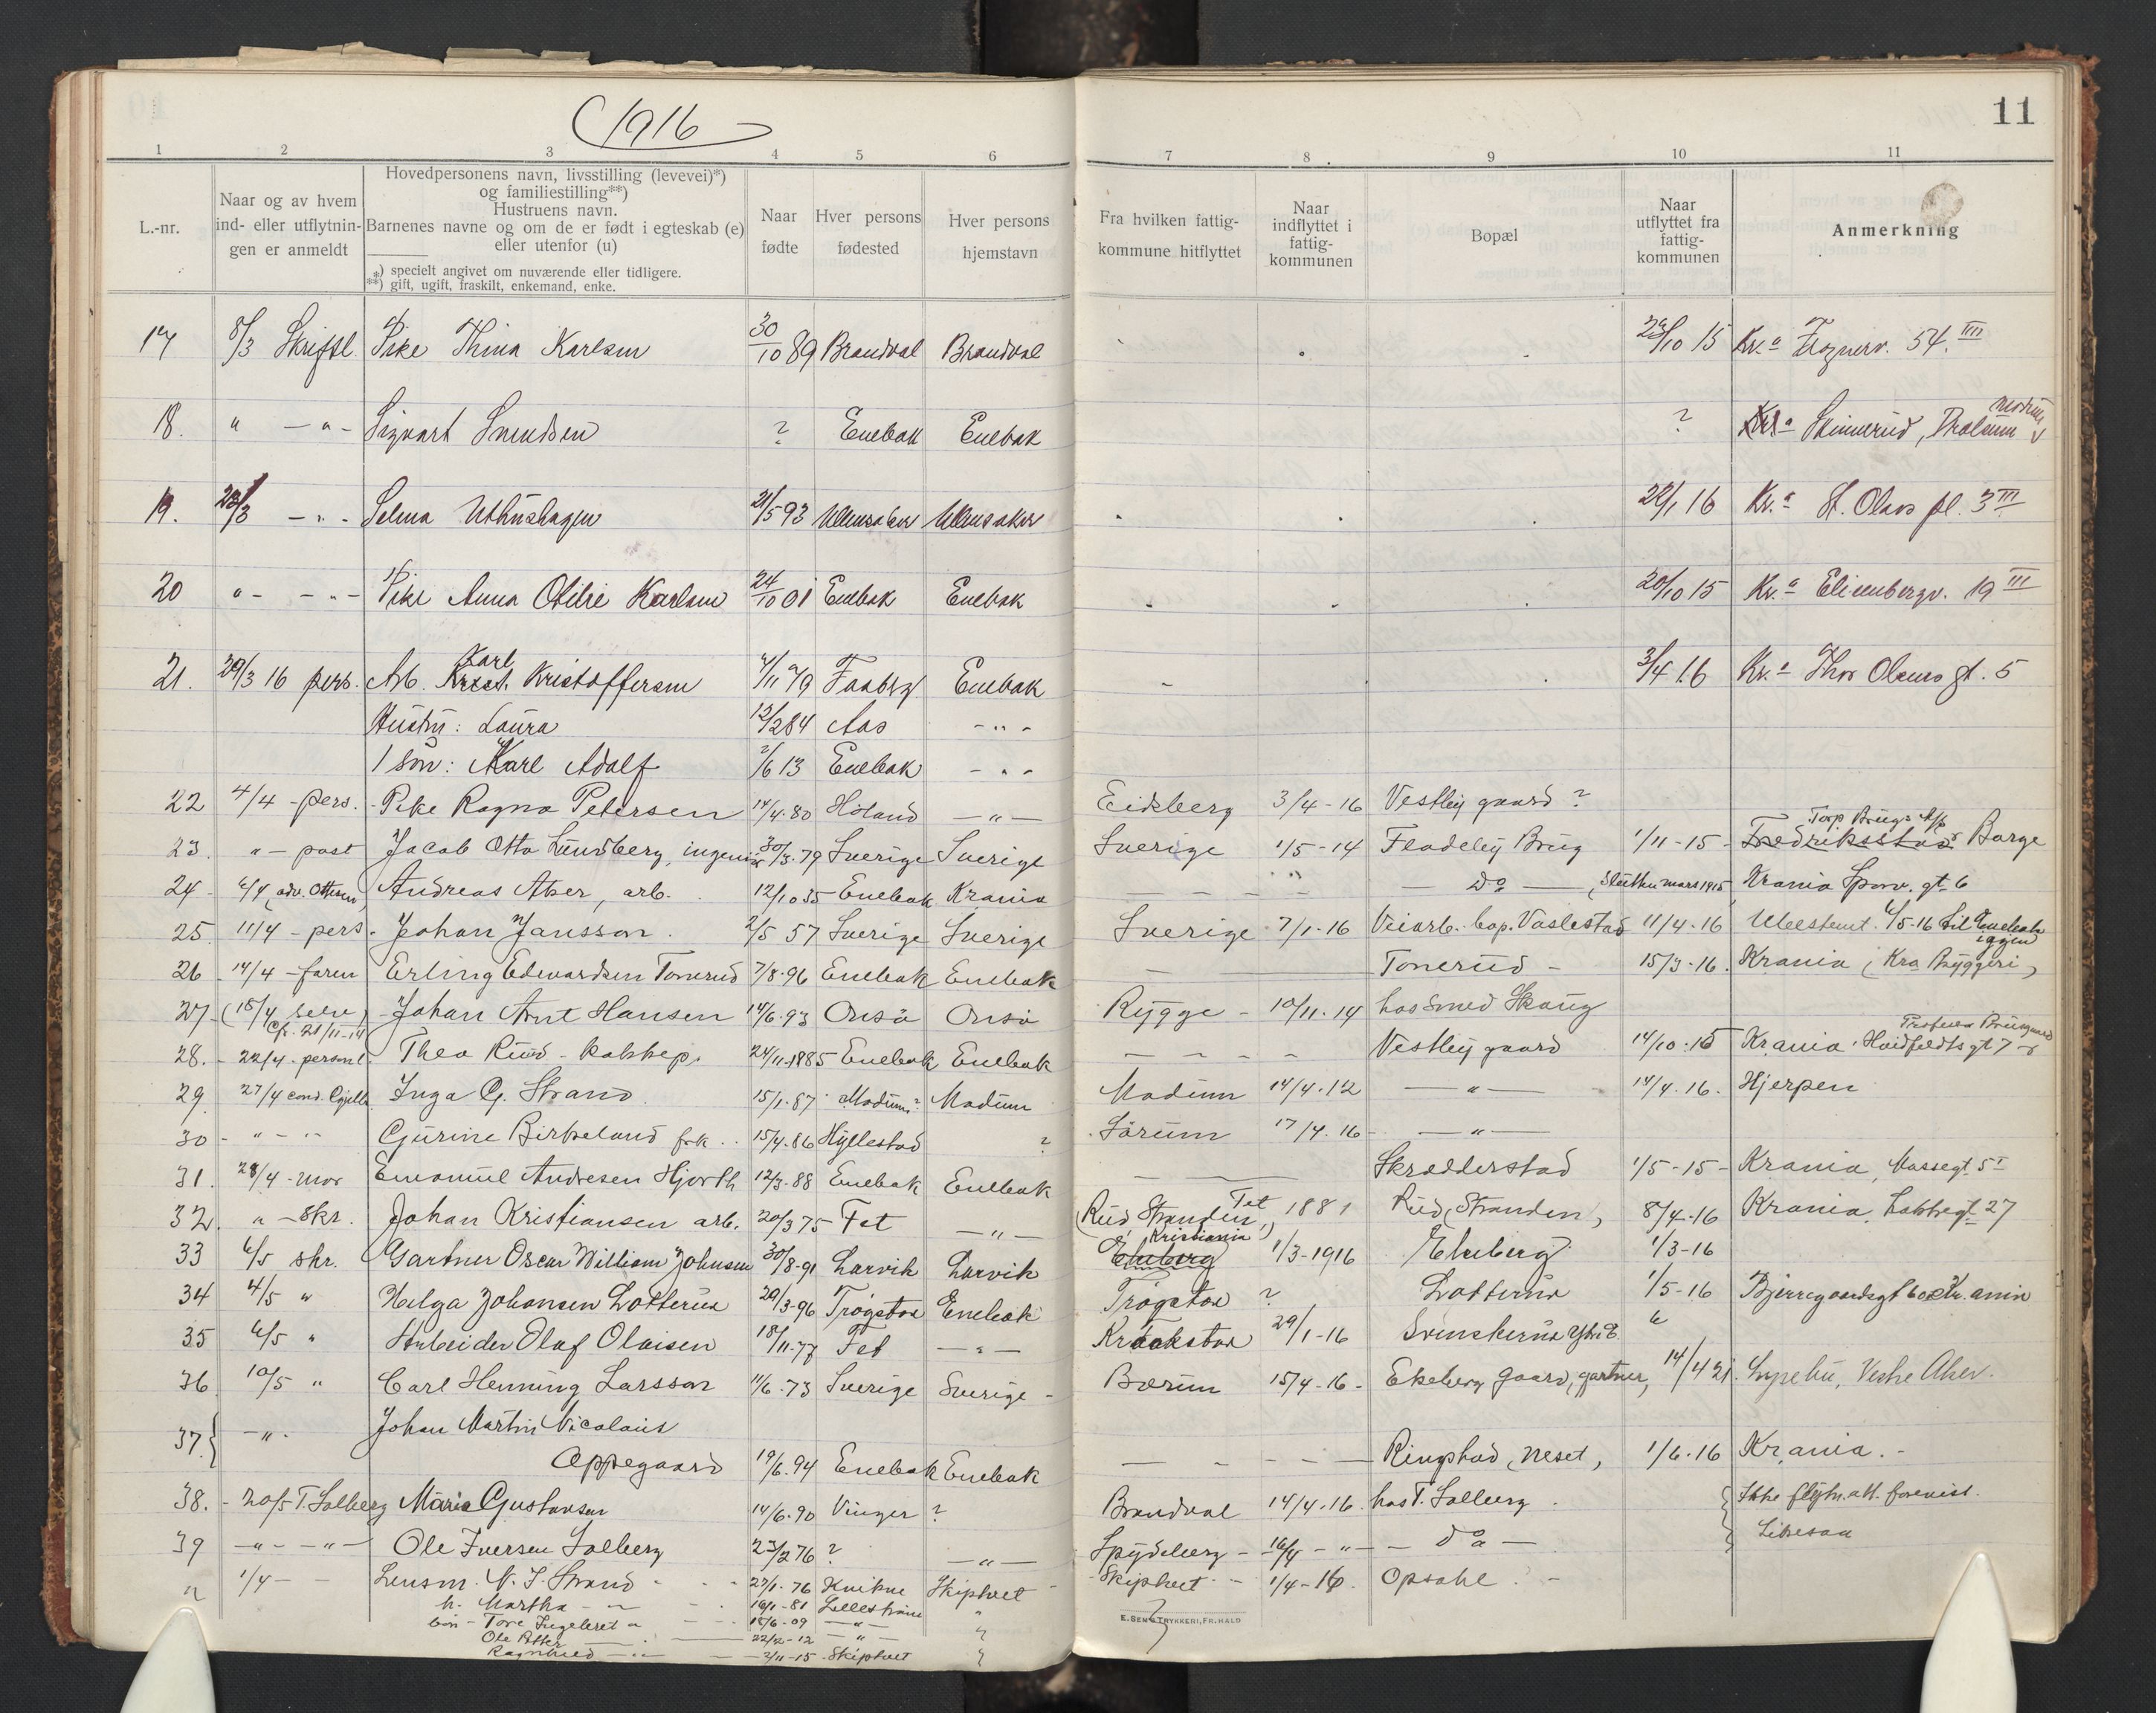 1916
11
1 2 3 4 5 6 7 8 9 10 11
L.-nr.
Naar og av hvem ind- eller utflytnin-gen er anmeldt
Hovedpersonens navn, livsstilling (levevei)*)
og familiestilling**)
Hustruens navn.
Barnenes navne og om de er født i egteskab (e)
eller utenfor (u)
*) specielt angivet om nuværende eller tidligere.
**) gift, ugift, fraskilt, enkemand, enke.
Naar fødte
Hver persons fødested
Hver persons hjemstavn
Fra hvilken fattig-kommune hitflyttet
Naar indflyttet i fattig-kommunen
Bopæl
Naar utflyttet fra fattig-kommunen
Anmerkning
17 8/3 Skriftl. Pike Thina Karlsen 30/10 89 Brandval Brandval 29/10 15 Kr.a Frognerv. 54 III
18. " - " - Sigvart Svendsen ? Enebak Enebak ? Skinnerud, Modum
19. 23/3 - " - Selma 21/5 93 Ullensaker Ullensaker 22/1 16 Kr.a St. Olavs pl. 3 III
20 " - - " - Pike Anna Otilie Karlsen 24/10 01 Enebak Enebak 20/10 15 Kr.a Elisenbergv. 19 III
21. 29/3 16 pers. Arb. Karl Kristoffersen 4/11 79 Faaberg Enebak - 3/4 16 Kr.a Thor Olsens gt. 5
Hustru: Laura 12/2 84 Aas - " -
1 søn: Karl Adolf 2/6 13 Enebak - " -
22 4/4 - pers. Pike Ragna Petersen 14/4.80 Høland - " - Eidsberg 3/4-16 Vestby gaard ?
23. " - post Jacob Otto Lundberg, ingeniør 30/3.79 Sverige Sverige Sverige 1/5-14 Fladeby Brug 1/11-15 - Torp Brug Fredriksstad Borge
24 - 6/4 Andreas Aker, arb. 12/10 35 Enebak Krania - - - Do - Slutten mars 1915 Krania gt. 6
25. 11/4 - pers. Johan Jansson. 2/5 57 Sverige Sverige Sverige 7/1-16 Veiarb. bop. Vaslestad 11/4-16 Ubestemt. 4/5-16 til Enebak igjen
26 14/4 - faren Erling Edvardsen Tonerud 7/8-96 Enebak Enebak - Tonerud - 15/3-16. Krania (Kra Bryggeri)
27 - (18/4 selv) Johan Arnt Hansen 14/6.93 Onsø Onsø Rygge - 10/11-14 hos smed Skaug
Cfr. 21/11-14
28. - 22/4 - personl. Thea Ruud - kokkep. 24/11-1885 Enebak Enebak - - - - Vestby gaard 14/10-15 Krania. Huidfeldts gt 7
29. 27/4 Inga G. Strand. 15/1-87 Modum? Modum Modum 14/4-12 - " - 14/4-16. Hjerpen
30 - " - " Gurine Birkeland frk. 15/4-86 Hyllestad ? Sørum 17/4.16 - - " -
31. 28/4 - mor Emanuel Andresen Hjorth 12/3-88 Enebak Enebak - Skrædderstad 1/5-15 - Krania, Mossegt. 5 I
32. " - Skr. Johan Kristiansen arb. 20/3 75 Fet - " - (Rud Stranden, Fet) 1881 Rud, Stranden, 8/4-16 Krania, 27
33 4/5 skr. Gartner Oscar William Johnsen 30/8-91 Larvik Larvik Ekeberg Kristiania 1/3-1916 Ekeberg 1/3-16
34 4/5 " Helga Johansen Lotterud 29/3-96 Trøgstad Enebak Trøgstad ? Lotterud 1/5-16 Bjerregaardsgt 60 Kr.ania
35 4/5 " Arbeider Olaf Olaisen 18/11-77 Fet - " - Kraakstad 29/1-16 Svenskerud "
36. 10/5 " Carl Henning Larsson 11/6.73 Sverige Sverige - Bærum 15/4-16 - Ekeberg Gaard, gartner, 14/4 21. Vestre Aker.
37. - " - Johan Martin Nicolaus
Oppegaard 19/6.94 Enebak Enebak - - - - Ringstad, Neset, 1/6-16 Krania. -
38. - 20/5 T. Solberg Maria Gustavsen 14/6-90 Vinger ? Brandval 14/4-16. hos T. Solberg Ikke flytn.att. forevist.
39 - " - - " - Ole Iversen Solberg 23/2 76 ? - " - Spydeberg - 16/4 - " - - do - Likesaa
" 1/4 - - Lensm. N. J. Strand - 27/1-76 Kvikne Skiptvet Skiptvet - 1/4-16. Opsahl. -
h. Martha - 16/1-81 Lillestrøm "
børn - Tore Ingebret " - 18/6-09 - " - "
Ole Petter - 22/2-12 - " - "
Ragnhild - 2/11-15 Skiptvet "
E. SEM'S TRYKKERI, FR.HALD